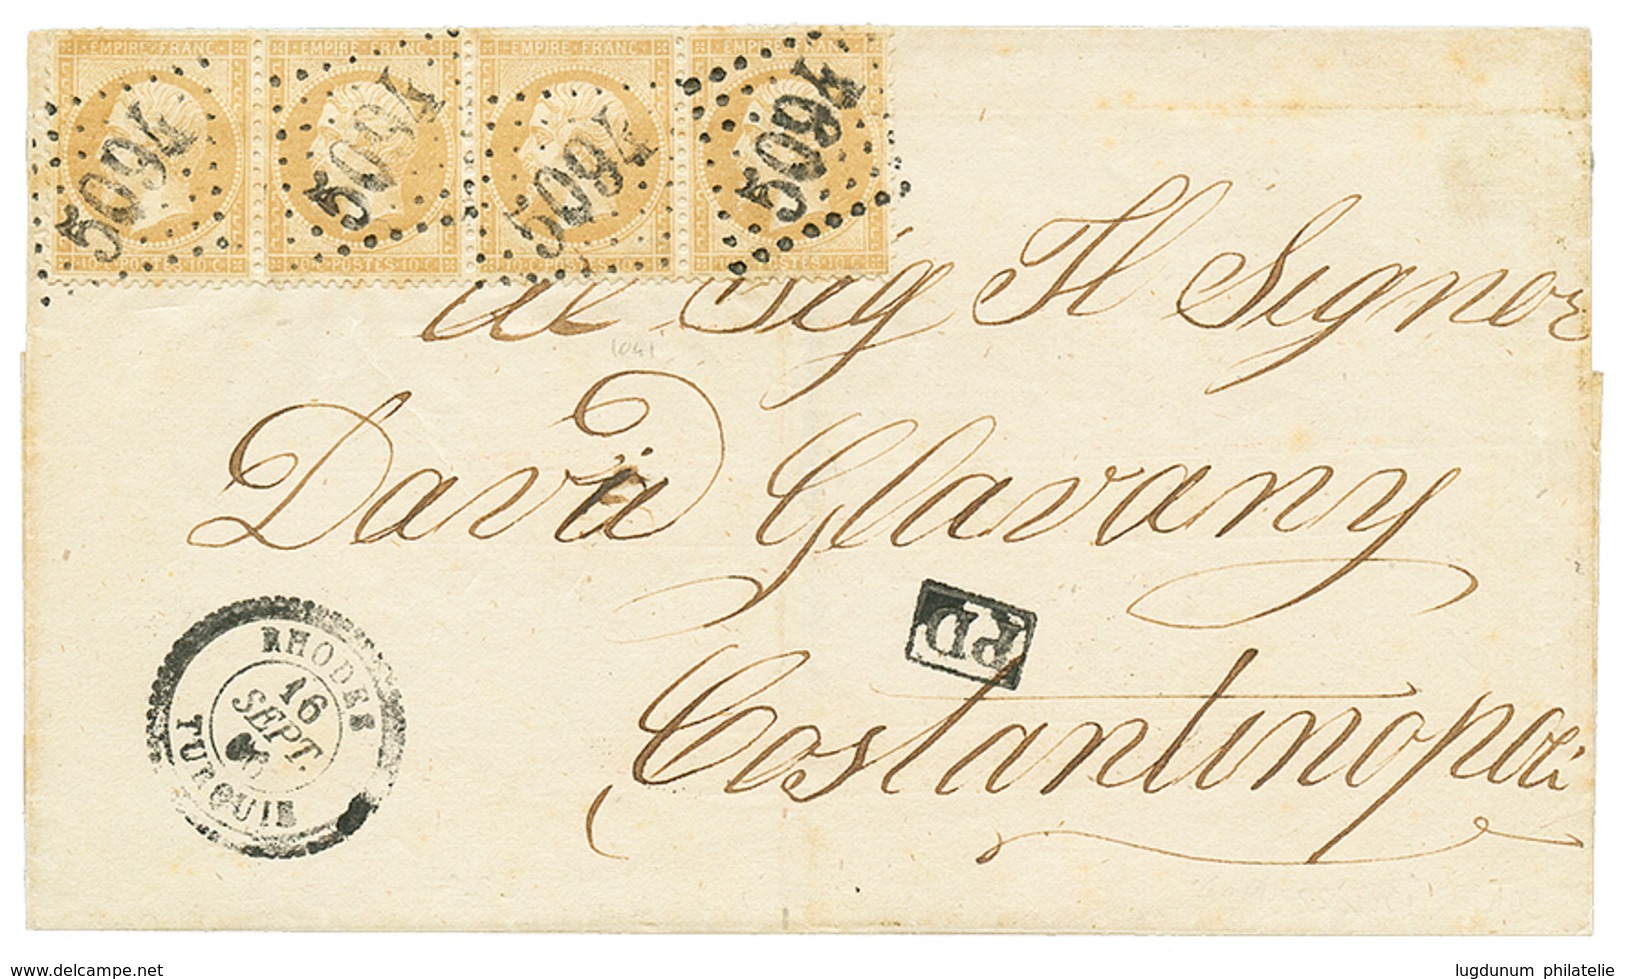 EMPIRE FRANC EMPIRE FRANC EMPIRE FRANC EMPIRE FRANC
5094 5094 5094 5094
POSTES 10 C POSTES 10 C POSTES 10 C POSTES 10 C
al Sig Il Signor
David Glavany
PD
Costantinopoli
RHODES
16
SEPT.
TURQUIE
www.delcampe.net
lugdunum philatelie